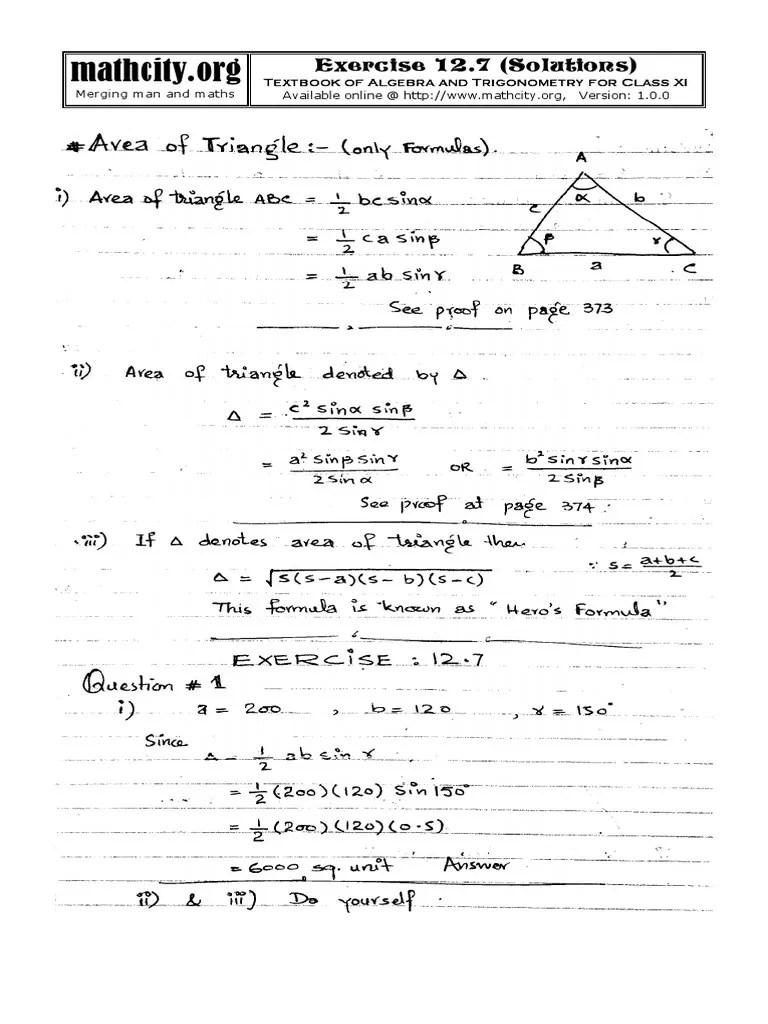 mathcity.org
Merging man and maths
Exercise 12.7 (Solutions)
TEXTBOOK OF ALGEBRA AND TRIGONOMETRY FOR CLASS XI
Available online @ http://www.mathcity.org, Version: 1.0.0
# Area of Triangle:- (only Formulas).
A
i) Area of triangle ABC = 1/2 bc sinα
c α b
= 1/2 ca sinβ
β γ
= 1/2 ab sinγ
B a C
See proof on page 373
ii) Area of triangle denoted by Δ
Δ = c² sinα sinβ / 2 sinγ
= a² sinβ sinγ / 2 sinα OR = b² sinγ sinα / 2 sinβ
See proof at page 374.
iii) If Δ denotes area of triangle then
Δ = √s(s-a)(s-b)(s-c) ∵ s = a+b+c / 2
This formula is known as "Hero's Formula"
EXERCISE : 12.7
Question # 1
i) a = 200 , b = 120 , γ = 150°
Since
Δ = 1/2 ab sin γ
= 1/2 (200)(120) Sin 150°
= 1/2 (200)(120)(0.5)
= 6000 sq. unit Answer
ii) & iii) Do yourself.